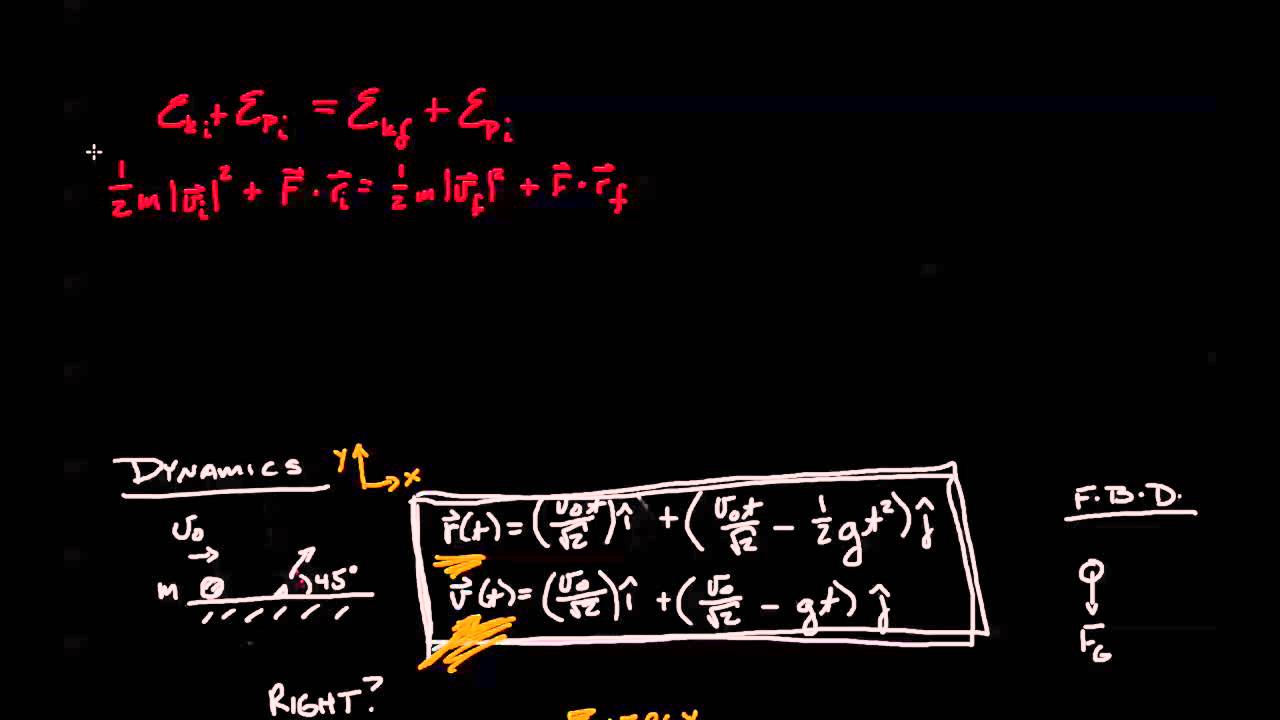 ℰₖᵢ + ℰₚᵢ = ℰₖf + ℰₚᵢ
1/2 m |v⃗ᵢ|² + F⃗ · r⃗ᵢ = 1/2 m |v⃗f|² + F⃗ · r⃗f
DYNAMICS
y
x
F.B.D.
v₀
m
45°
r⃗(t) = (v₀t/√2) î + (v₀t/√2 − 1/2 gt²) ĵ
v⃗(t) = (v₀/√2) î + (v₀/√2 − gt) ĵ
F⃗G
RIGHT?
ENERGY